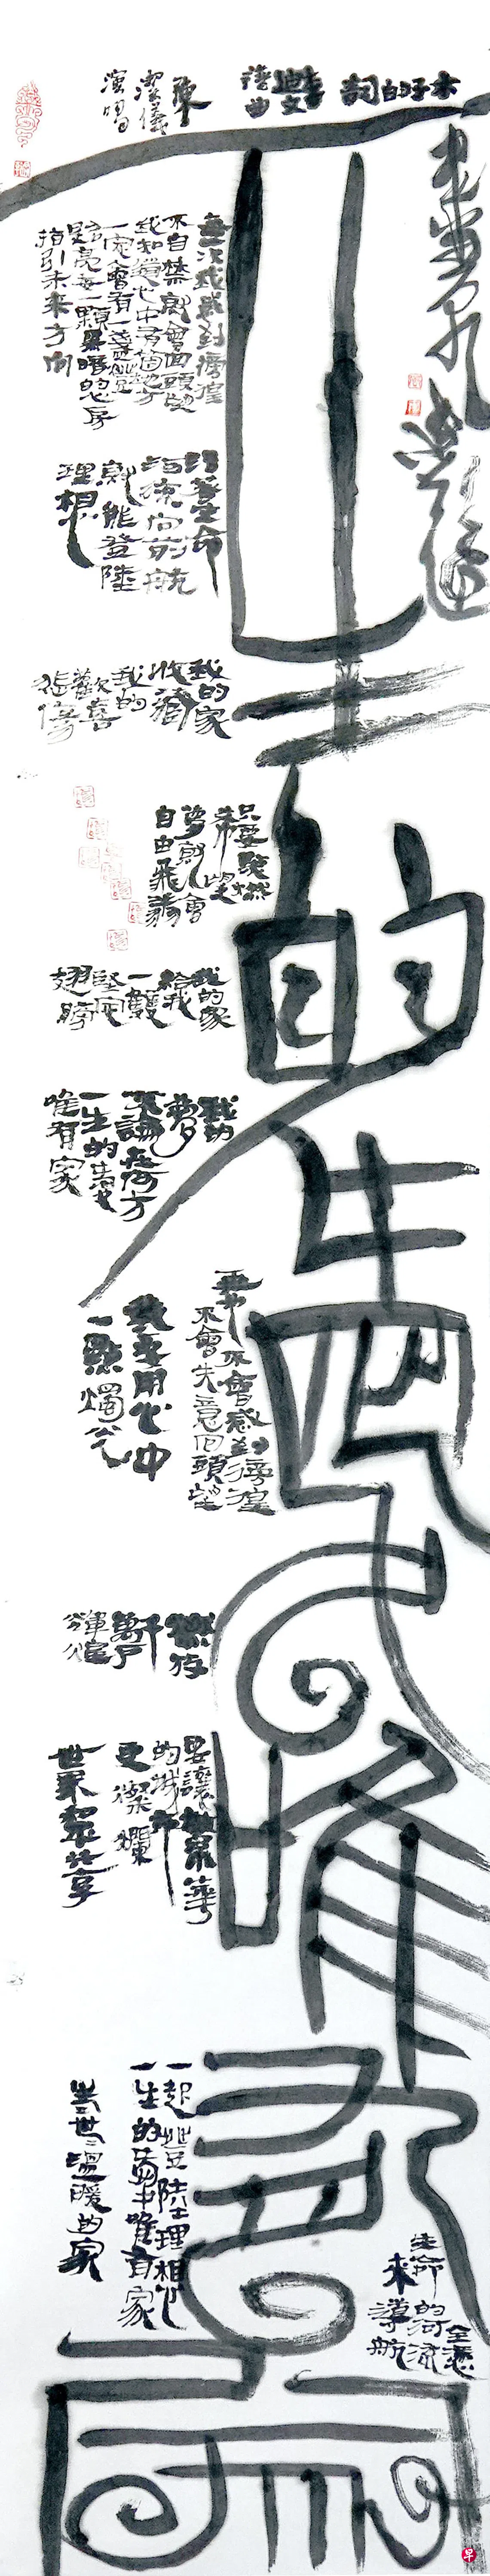 一生的愛唯有家
李迪文
譜曲
陳
潔儀
演唱
每一次我感到徬徨
不自禁就會回頭望
我知道心中有個地方
一定會有一盞燈
照亮每一顆黑暗的心房
指引未來方向
沿著生命
河流向前航
就能登陸
理想
我的家
收藏
我的
歡喜
悲傷
只要點燃
希望
夢就會
自由飛翔
我的家
給我
一雙
堅定
翅膀
我的
夢
不論在何方
一生的愛
唯有家
再不會感到徬徨
不會失意回頭望
我要用心中
一點燭光
燃放
千
萬戶
輝煌
要讓繁華
的城市
更燦爛
世界都來共享
生命的河流
全憑
來導航
一起登陸理想
一生的夢中唯有家
生生世世溫暖的家
早